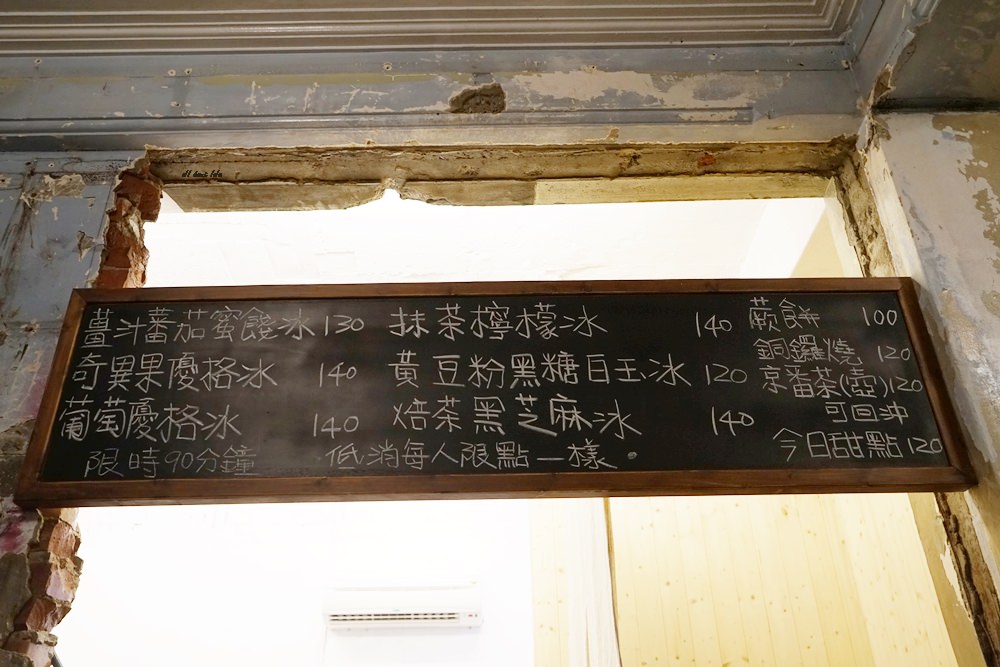 薑汁蕃茄蜜餞冰 130
奇異果優格冰 140
葡萄優格冰 140
限時90分鐘
抹茶檸檬冰 140
黃豆粉黑糖白玉冰 120
焙茶黑芝麻冰 140
低消每人限點一樣。
蕨餅 100
銅鑼燒 120
京番茶(壺) 120
可回沖
今日甜點 120